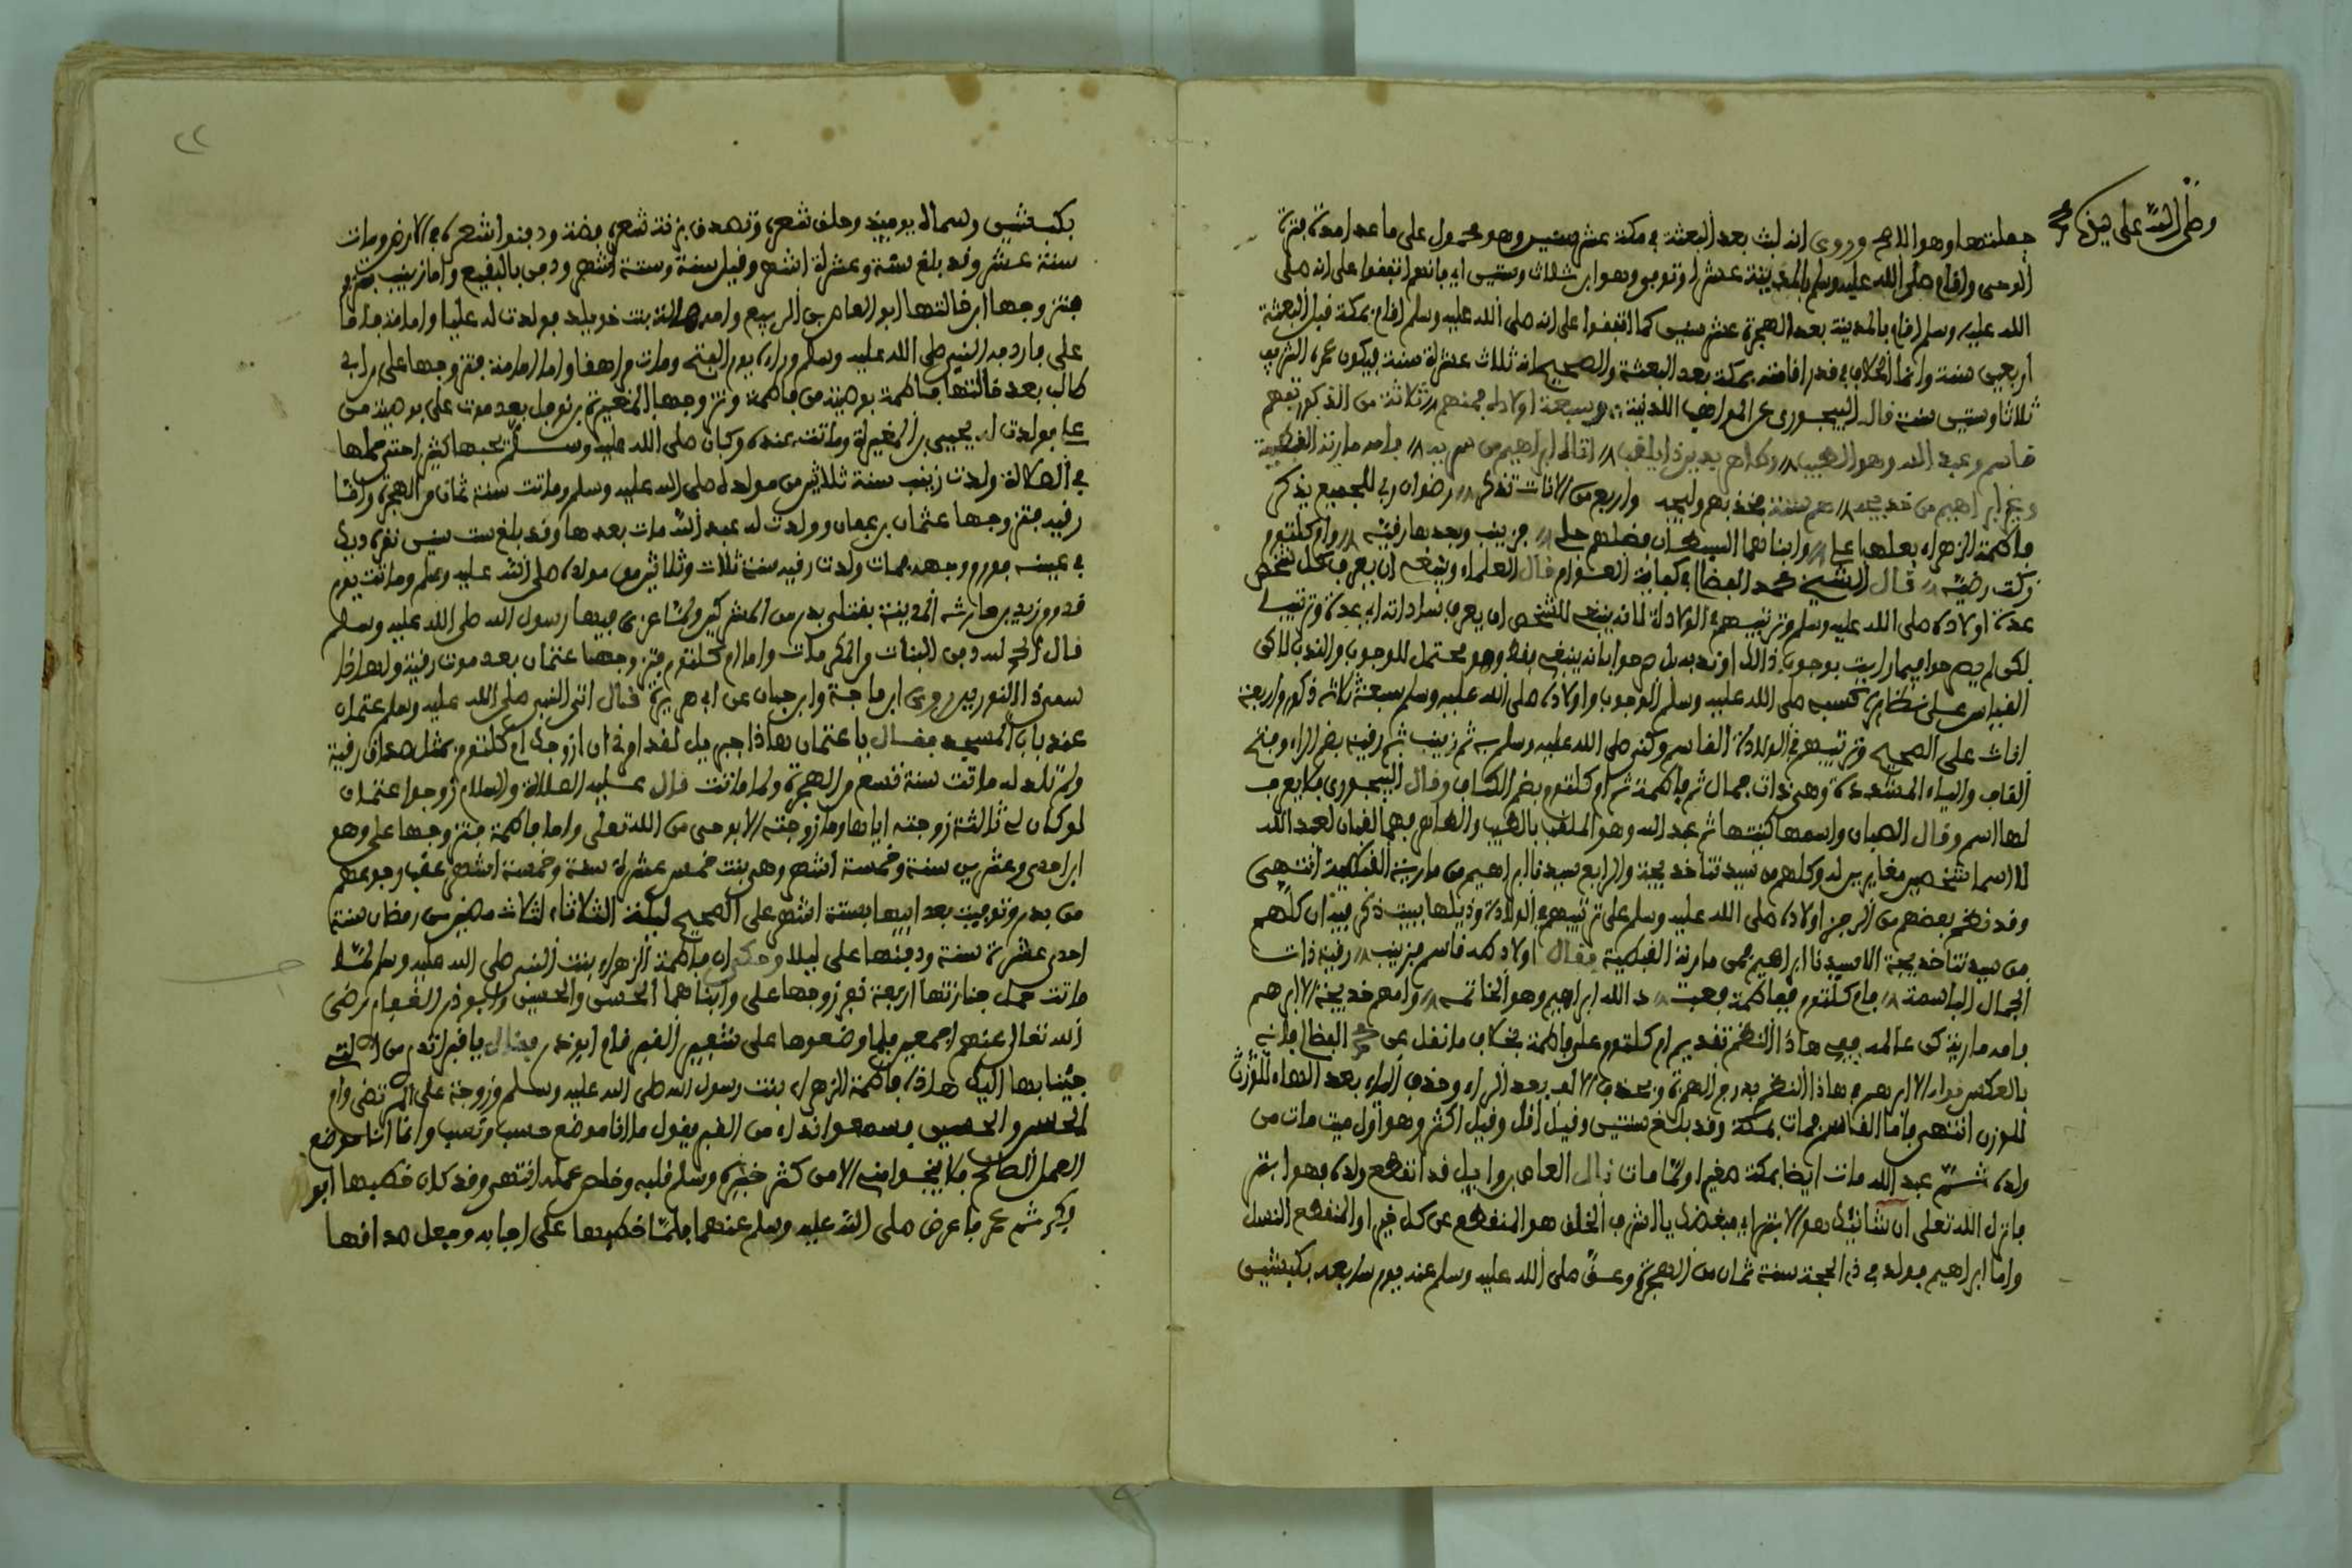 وصلى الله على
جعلتها وهو الا وروى انه لبث بعد البعثة في مكة عشر سنين وهو محمول على ما عدا مدة فترة
الوحى واقام صلى الله عليه وسلم بالمدينة عشرا وتوفي وهو ابن ثلاث وستين اي فانهم اتفقوا على انه صلى
الله عليه وسلم اقام بالمدينة بعد الهجرة عشر سنين كما اتفقوا على انه صلى الله عليه وسلم اقام بمكة قبل البعثة
اربعين سنة وانما الخلاف في قدر اقامته بمكة بعد البعثة والصحيح انه ثلاث عشرة سنة فيكون عمره الشريف
ثلاثا وستين سنة قال البيجورى عن المواهب اللدنية وسبعة اولاده فمنهم ثلاثة من الذكور تفهم
قاسم وعبد الله وهو الطيب وطاهر بذين ذا يلقب اتاه ابراهيم من سرية فامه مارية القبطية
وغير ابراهيم من خديجة هم ستة فخذ بهم وليجة واربع من الاناث تذكر رضوان ربي للجميع يذكر
فاطمة الزهراء بعلها علي وابناهما السبطان فضلهم جلي فزينب وبعدها رقية وام كلثوم
زكت رضية قال الشيخ محمد الفضالي في كفاية العوام قال العلماء وينبغي ان يعرف كل شخص
عدة اولاده صلى الله عليه وسلم وترتيبهم في الولادة لانه ينبغي للشخص ان يعرف ساداته اي عدة وترتيبا
لكن لم يصرحوا فيما رايت بوجوب ذالك او ندبه بل صرحوا بانه ينبغي فقط وهو محتمل للوجوب والندب لاكن
القياس على نظايره كنسبه صلى الله عليه وسلم الوجوب واولاده صلى الله عليه وسلم سبعة ثلاثة ذكور واربعة
اناث على الصحيح وترتيبهم في الولادة القاسم وكني صلى الله عليه وسلم به ثم زينب ثم رقية بضم الراء وفتح
القاف والياء المشددة وهي ذات جمال ثم فاطمة ثم ام كلثوم بضم الكاف وقال البيجورى فلا يعرف
لها اسم وقال الصبان واسمها كنيتها ثم عبد الله وهو الملقب بالطيب والطاهر فهما لقبان لعبد الله
لا اسما شخصين مغايرين له وكلهم من سيدتنا خديجة والرابع سيدنا ابراهيم من مارية القبطية انتهى
وقد نظم بعضهم من الرجز اولاده صلى الله عليه وسلم على ترتيبهم في الولادة وذيلها ببيت ذكر فيه ان كلهم
من سيدتنا خديجة الا سيدنا ابراهيم فمن مارية القبطية فقال اولاد طه قاسم فزينب رقية ذات
الجمال الباسمة فام كلثوم ففاطمة فعبد الله ابراهيم وهو الخاتمه وامهم خديجة الا ابرهم
فامه مارية كن عالمه ففي هاذا النظم تقديم ام كلثوم على فاطمة بخلاف ما نقل عن الفضالي فانه
بالعكس قوله الا ابرهم في هاذا النظم بدرج الهمزة وبحذف الالف بعد الراء وحذف الياء بعد الهاء للوزن
للوزن انتهى فاما القاسم فمات بمكة وقد بلغ سنتين وقيل اقل وقيل اكثر وهو اول ميت مات من
ولده ثم عبد الله مات ايضا بمكة صغيرا ولما مات قال العاص بن وايل قد انقطع ولده فهو ابتر
فانزل الله تعلى ان شانئك هو الابتر اي مبغضك يا اشرف الخلق هو المنقطع عن كل خير او المنقطع النسل
واما ابراهيم فولد في ذي الحجة سنة ثمان من الهجرة وعق صلى الله عليه وسلم عنه يوم سابعه بكبشين
٢٢
بكبشين وسماه يوميذ وحلق شعره وتصدق بزنة شعره فضة ودفنوا شعره في الارض ومات
سنة عشر وقد بلغ سنة وعشرة اشهر وقيل سنة وستة اشهر ودفن بالبقيع واما زينب
فتزوجها ابن خالتها ابو العاص بن الربيع وامه هالة بنت خويلد فولدت له عليا وامامة
على ما ردف النبي صلى الله عليه وسلم وراءه يوم الفتح ومات مراهقا واما امامة فتزوجها علي بن ابي
طالب بعد خالتها فاطمة بوصية من فاطمة وتزوجها المغيرة بن نوفل بعد موت علي بوصية من
علي فولدت له يحيى بن المغيرة وماتت عنده وكان صلى الله عليه وسلم يحبها كثيرا حتى حملها
في الصلاة ولدت زينب سنة ثلاثين من مولده صلى الله عليه وسلم وماتت سنة ثمان من الهجرة واما
رقية فتزوجها عثمان بن عفان وولدت له عبد الله مات بعدها وقد بلغ ست سنين نقره ديك
في عينه فورم وجهه فمات ولدت رقية سنة ثلاث وثلاثين من مولده صلى الله عليه وسلم وماتت يوم
قدوم زيد بن حارثة المدينة بقتلى بدر من المشركين ولما عزي فيها رسول الله صلى الله عليه وسلم
قال الحمد لله دفن البنات من المكرمات واما ام كلثوم فتزوجها عثمان بعد موت رقية ولهاذا
سمي ذا النورين روى ابن ماجة وابن حبان عن ابي هريرة قال اتى النبي صلى الله عليه وسلم عثمان
عند باب المسجد فقال يا عثمان هاذا جبريل لقد امرني ان ازوجك ام كلثوم بمثل صداق رقية
ولم تلد له ماتت سنة تسع من الهجرة ولما ماتت قال عليه الصلاة والسلام زوجوا عثمان
لو كان لي ثالثة زوجته اياها وما زوجته الا بوحى من الله تعلى واما فاطمة فتزوجها علي وهو
ابن احدى وعشرين سنة وخمسة اشهر وهي بنت خمس عشرة سنة وخمسة اشهر عقب رجوعهم
من بدر وتوفيت بعد ابيها بستة اشهر على الصحيح ليلة الثلاثاء لثلاث مضين من رمضان سنة
احدى عشرة سنة ودفنها علي ليلا وحكي ان فاطمة الزهراء بنت النبي صلى الله عليه وسلم لما
ماتت حمل جنازتها اربعة نفر زوجها علي وابناهما الحسن والحسين وابو ذر الغفاري رضى
الله تعالى عنهم اجمعين فلما وضعوها على شفير القبر قام ابو ذر فقال يا قبر اتدري من التي
جئنا بها اليك هاذه فاطمة الزهراء بنت رسول الله صلى الله عليه وسلم وزوجة علي المرتضى وام
الحسن والحسين فسمعوا نداء من القبر يقول ما انا موضع حسب ونسب وانما انا موضع
العمل الصالح فلا ينجوا مني الا من كثر خيره وسلم قلبه وخلص عمله انتهى وقد كان خطبها ابو
بكر ثم عمر فاعرض صلى الله عليه وسلم عنهما فلما خطبها علي اجابه وجعل صداقها